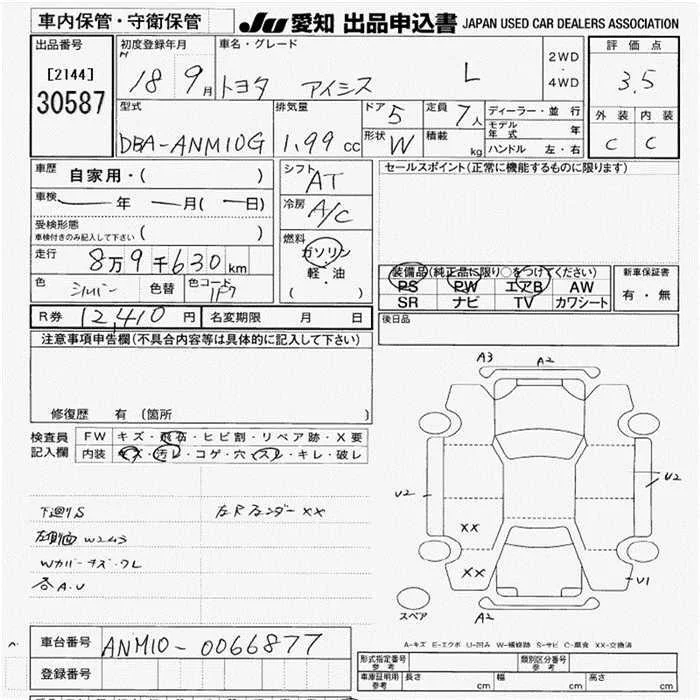 車内保管・守衛保管
JU 愛知 出品申込書 JAPAN USED CAR DEALERS ASSOCIATION
出品番号
[2144]
30587
初度登録年月
H 18 9月
車名・グレード
トヨタ アイシス L
2WD
・
4WD
評価点
3.5
外装 内装
C C
型式
DBA-ANM10G
排気量
1.99 cc
ドア 5
定員 7人
形状 W
積載 kg
ディーラー・並行
モデル年式 年
ハンドル 左・右
車歴 自家用・( )
車検 年 月( 日)
受検形態
車検付きのみ記入して下さい ( )
走行 8万9千630km
色 シルバー 色替 色コード 1F7
シフト AT
冷房 A/C
燃料
ガソリン
・
軽・油
( )
セールスポイント(正常に機能するものに限ります)
装備品(純正品に限り○をつけてください)
PS PW エアB AW
SR ナビ TV カワシート
新車保証書
有・無
後日品
R券 12,410円 名変期限 月 日
注意事項申告欄(不具合内容等は具体的に記入して下さい)
修復歴 有 (箇所 )
検査員
記入欄
FW キズ・飛石・ヒビ割・リペア跡・X要
内装 キズ・汚レ・コゲ・穴・スレ・キレ・破レ
下廻りS
左Rフェンダー XX
左側面 W2 4 3
Wカバーキズ・ワレ
各A.U
A3 A2
U2 U2
XX
XX U1
スペア A2
A-キズ E-エクボ U-凹み W-補修跡 S-サビ C-腐食 XX-交換済
車台番号 ANM10-0066877
登録番号
形式指定番号
参考
類別区分番号
参考
車庫証明用
参考
長さ cm 幅 cm 高さ cm